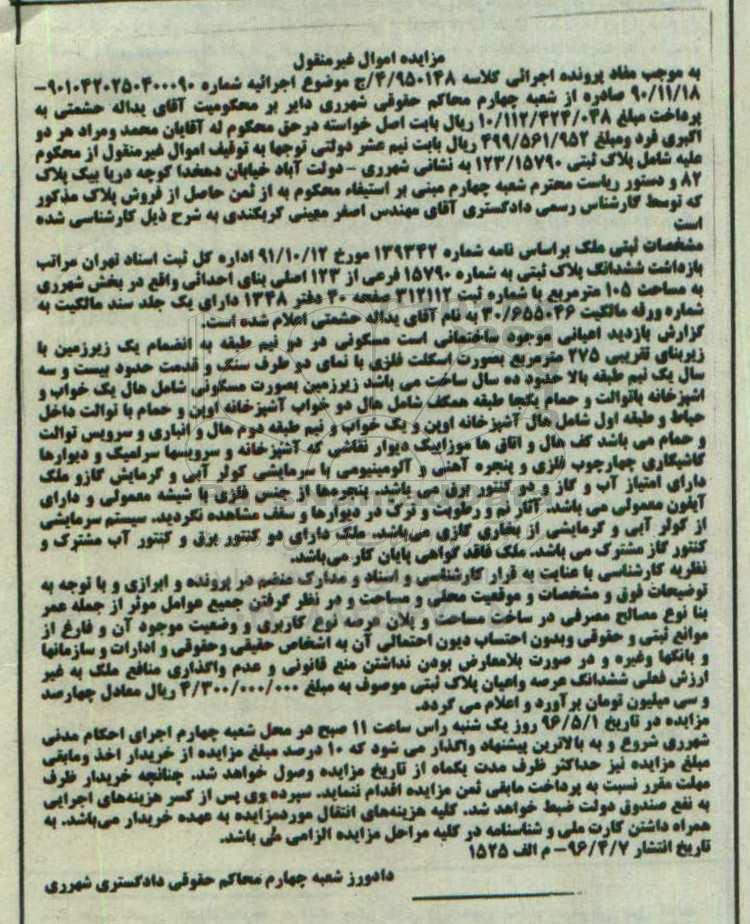 مزایده اموال غیرمنقول
به موجب مفاد پرونده اجرائی کلاسه ۴/۹۵۰۱۴۸/ج موضوع اجرائیه شماره ۹۰۱۰۴۲۰۲۵۰۴۰۰۰۹۰–
۹۰/۱۱/۱۸ صادره از شعبه چهارم محاکم حقوقی شهرری دایر بر محکومیت آقای یداله حشمتی به
پرداخت مبلغ ۱۰/۱۱۲/۴۲۴/۰۴۸ ریال بابت اصل خواسته درحق محکوم له آقایان محمد ومراد هر دو
اکبری فرد ومبلغ ۴۹۹/۵۶۱/۹۵۲ ریال بابت نیم عشر دولتی توجها به توقیف اموال غیرمنقول از محکوم
علیه شامل پلاک ثبتی ۱۲۳/۱۵۷۹۰ به نشانی شهرری – دولت آباد خیابان دهخدا کوچه دریا بیک پلاک
۸۲ و دستور ریاست محترم شعبه چهارم مبنی بر استیفاء محکوم به از ثمن حاصل از فروش پلاک مذکور
که توسط کارشناس رسمی دادگستری آقای مهندس اصغر معینی کربکندی به شرح ذیل کارشناسی شده
است
مشخصات ثبتی ملک براساس نامه شماره ۱۳۹۳۴۲ مورخ ۹۱/۱۰/۱۲ اداره کل ثبت اسناد تهران مراتب
بازداشت ششدانگ پلاک ثبتی به شماره ۱۵۷۹۰ فرعی از ۱۲۳ اصلی بنای احداثی واقع در بخش شهرری
به مساحت ۱۰۵ مترمربع با شماره ثبت ۳۱۲۱۱۲ صفحه ۴۰ دفتر ۱۳۴۸ دارای یک جلد سند مالکیت به
شماره ورقه مالکیت ۳۰/۶۵۵۰۴۶ به نام آقای یداله حشمتی اعلام شده است.
گزارش بازدید اعیانی موجود ساختمانی است مسکونی در دو نیم طبقه به انضمام یک زیرزمین با
زیربنای تقریبی ۲۷۵ مترمربع بصورت اسکلت فلزی با نمای دو طرف سنگ و قدمت حدود بیست و سه
سال یک نیم طبقه بالا حدود ده سال ساخت می باشد زیرزمین بصورت مسکونی شامل هال یک خواب و
اشپزخانه باتوالت و حمام یکجا طبقه همکف شامل هال دو خواب آشپزخانه اوپن و حمام با توالت داخل
حیاط و طبقه اول شامل هال آشپزخانه اوپن و یک خواب و نیم طبقه دوم هال و انباری و سرویس توالت
و حمام می باشد کف هال و اتاق ها موزاییک دیوار نقاشی که آشپزخانه و سرویسها سرامیک و دیوارها
کاشیکاری چهارچوب فلزی و پنجره آهنی و آلومینیومی با سرمایشی کولر آبی و گرمایش گازو ملک
دارای امتیاز آب و گاز و دو کنتور برق می باشد. پنجره‌ها از جنس فلزی با شیشه معمولی و دارای
آیفون معمولی می باشد. آثار نم و رطوبت و ترک در دیوارها و سقف مشاهده نگردید. سیستم سرمایشی
از کولر آبی و گرمایشی از بخاری گازی می‌باشد. ملک دارای دو کنتور برق و کنتور آب مشترک و
کنتور گاز مشترک می باشد. ملک فاقد گواهی پایان کار می‌باشد.
نظریه کارشناسی با عنایت به قرار کارشناسی و اسناد و مدارک منضم در پرونده و ابرازی و با توجه به
توضیحات فوق و مشخصات و موقعیت محلی و مساحت و در نظر گرفتن جمیع عوامل موثر از جمله عمر
بنا نوع مصالح مصرفی در ساخت مساحت و پلان عرصه نوع کاربری و وضعیت موجود آن و فارغ از
موانع ثبتی و حقوقی وبدون احتساب دیون احتمالی آن به اشخاص حقیقی وحقوقی و ادارات و سازمانها
و بانکها وغیره و در صورت بلامعارض بودن نداشتن منع قانونی و عدم واگذاری منافع ملک به غیر
ارزش فعلی ششدانگ عرصه واعیان پلاک ثبتی موصوف به مبلغ ۴/۳۰۰/۰۰۰/۰۰۰ ریال معادل چهارصد
و سی میلیون تومان برآورد و اعلام می گردد.
مزایده در تاریخ ۹۶/۵/۱ روز یک شنبه راس ساعت ۱۱ صبح در محل شعبه چهارم اجرای احکام مدنی
شهرری شروع و به بالاترین پیشنهاد واگذار می شود که ۱۰ درصد مبلغ مزایده از خریدار اخذ ومابقی
مبلغ مزایده نیز حداکثر ظرف مدت یکماه از تاریخ مزایده وصول خواهد شد. چنانچه خریدار ظرف
مهلت مقرر نسبت به پرداخت مابقی ثمن مزایده اقدام ننماید. سپرده وی پس از کسر هزینه‌های اجرایی
به نفع صندوق دولت ضبط خواهد شد. کلیه هزینه‌های انتقال موردمزایده به عهده خریدار می‌باشد. به
همراه داشتن کارت ملی و شناسنامه در کلیه مراحل مزایده الزامی می باشد.
تاریخ انتشار ۹۶/۴/۷– م الف ۱۵۲۵
دادورز شعبه چهارم محاکم حقوقی دادگستری شهرری